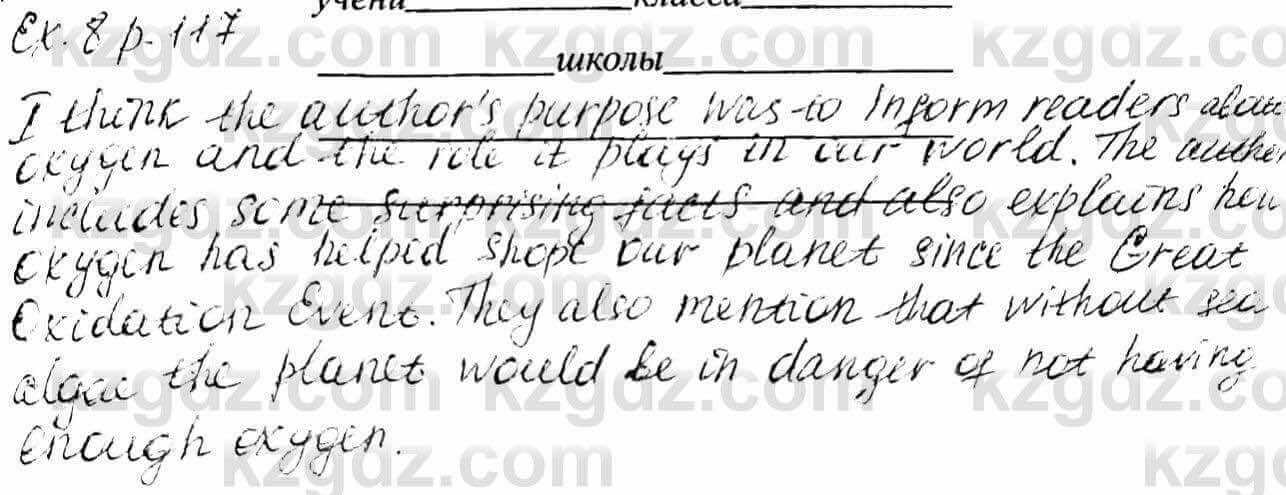 учени класса
Ex. 8 p. 117
школы
I think the author's purpose was to inform readers about
oxygen and the role it plays in our world. The author
includes some surprising facts and also explains how
oxygen has helped shope our planet since the Great
Oxidation Event. They also mention that without sea
algae the planet would be in danger of not having
enough oxygen.